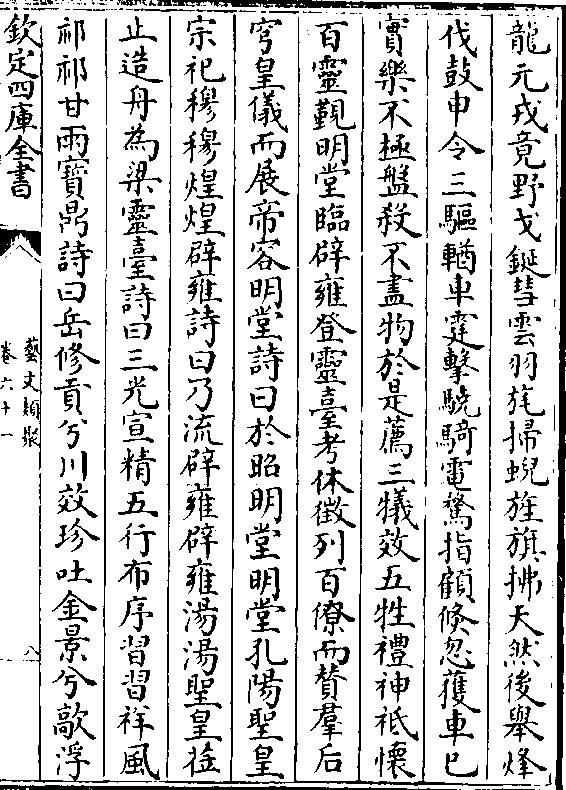 龍元戎竟野戈鋋彗雲羽旄掃蜺旌旗拂天然後舉烽
伐鼓申令三驅輶車霆擊驍騎電騖指顧倐忽獲車已
實樂不極盤殺不盡物於是薦三犧效五牲禮神祇懷
百靈覲明堂臨辟雍登靈臺考休徵列百僚而賛羣后
穹皇儀而展帝容明堂詩曰於昭明堂明堂孔陽聖皇
宗祀穆穆煌煌辟雍詩曰乃流辟雍辟雍湯湯聖皇莅
止造舟為梁靈臺詩曰三光宣精五行布序習習祥風
祁祁甘雨寶鼎詩曰岳修貢兮川效珍吐金景兮歊浮
欽定四庫全書
藝文類聚
卷六十一
八